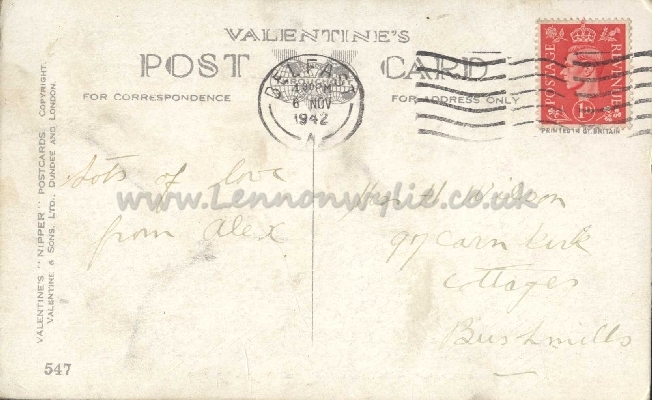 VALENTINE'S
POST CARD
FOR CORRESPONDENCE
FOR ADDRESS ONLY
BELFAST
4.30PM
6 NOV
1942
POSTAGE REVENUE
1D
PRINTED IN GT. BRITAIN
VALENTINE'S "NIPPER" POSTCARDS. COPYRIGHT.
VALENTINE & SONS, LTD., DUNDEE AND LONDON.
www.Lennonwylie.co.uk
Lots of love
from Alex
Wilson
97 Carn Kirk
Cottages
Bushmills
547